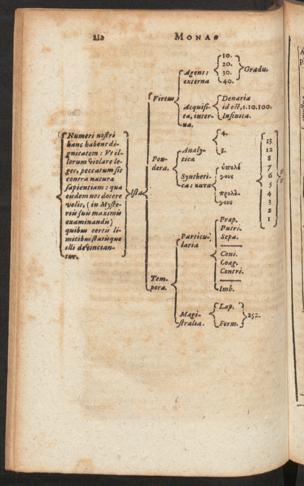 212 MONAS
Numeri nostri
hanc habent di-
gnitatem: Vt il-
lorum violare le-
ges, peccatum sit
contra naturæ
sapientiam: quæ
eisdem nos docere
volet, (in Myste-
riis suis maximis
examinandis)
quibus certis li-
mitibus
illi
tur.
Ista
Virtus
Agens:
externa
10.
20.
30.
40.
Gradu.
Acquisi-
ta, inter-
na.
Denaria
id est, 1.10.100.
Infinita.
Pon-
dera.
Analy-
tica
4.
8.
Syntheti-
ca:
13
12
8
7
6
5
4
3
2
1
Tem-
pora.
Particu-
laria
Præp.
Putri.
Sepa.
Coni.
Coag.
Contri.
Imb.
Magi-
stralia.
Lap.
Ferm.
252.